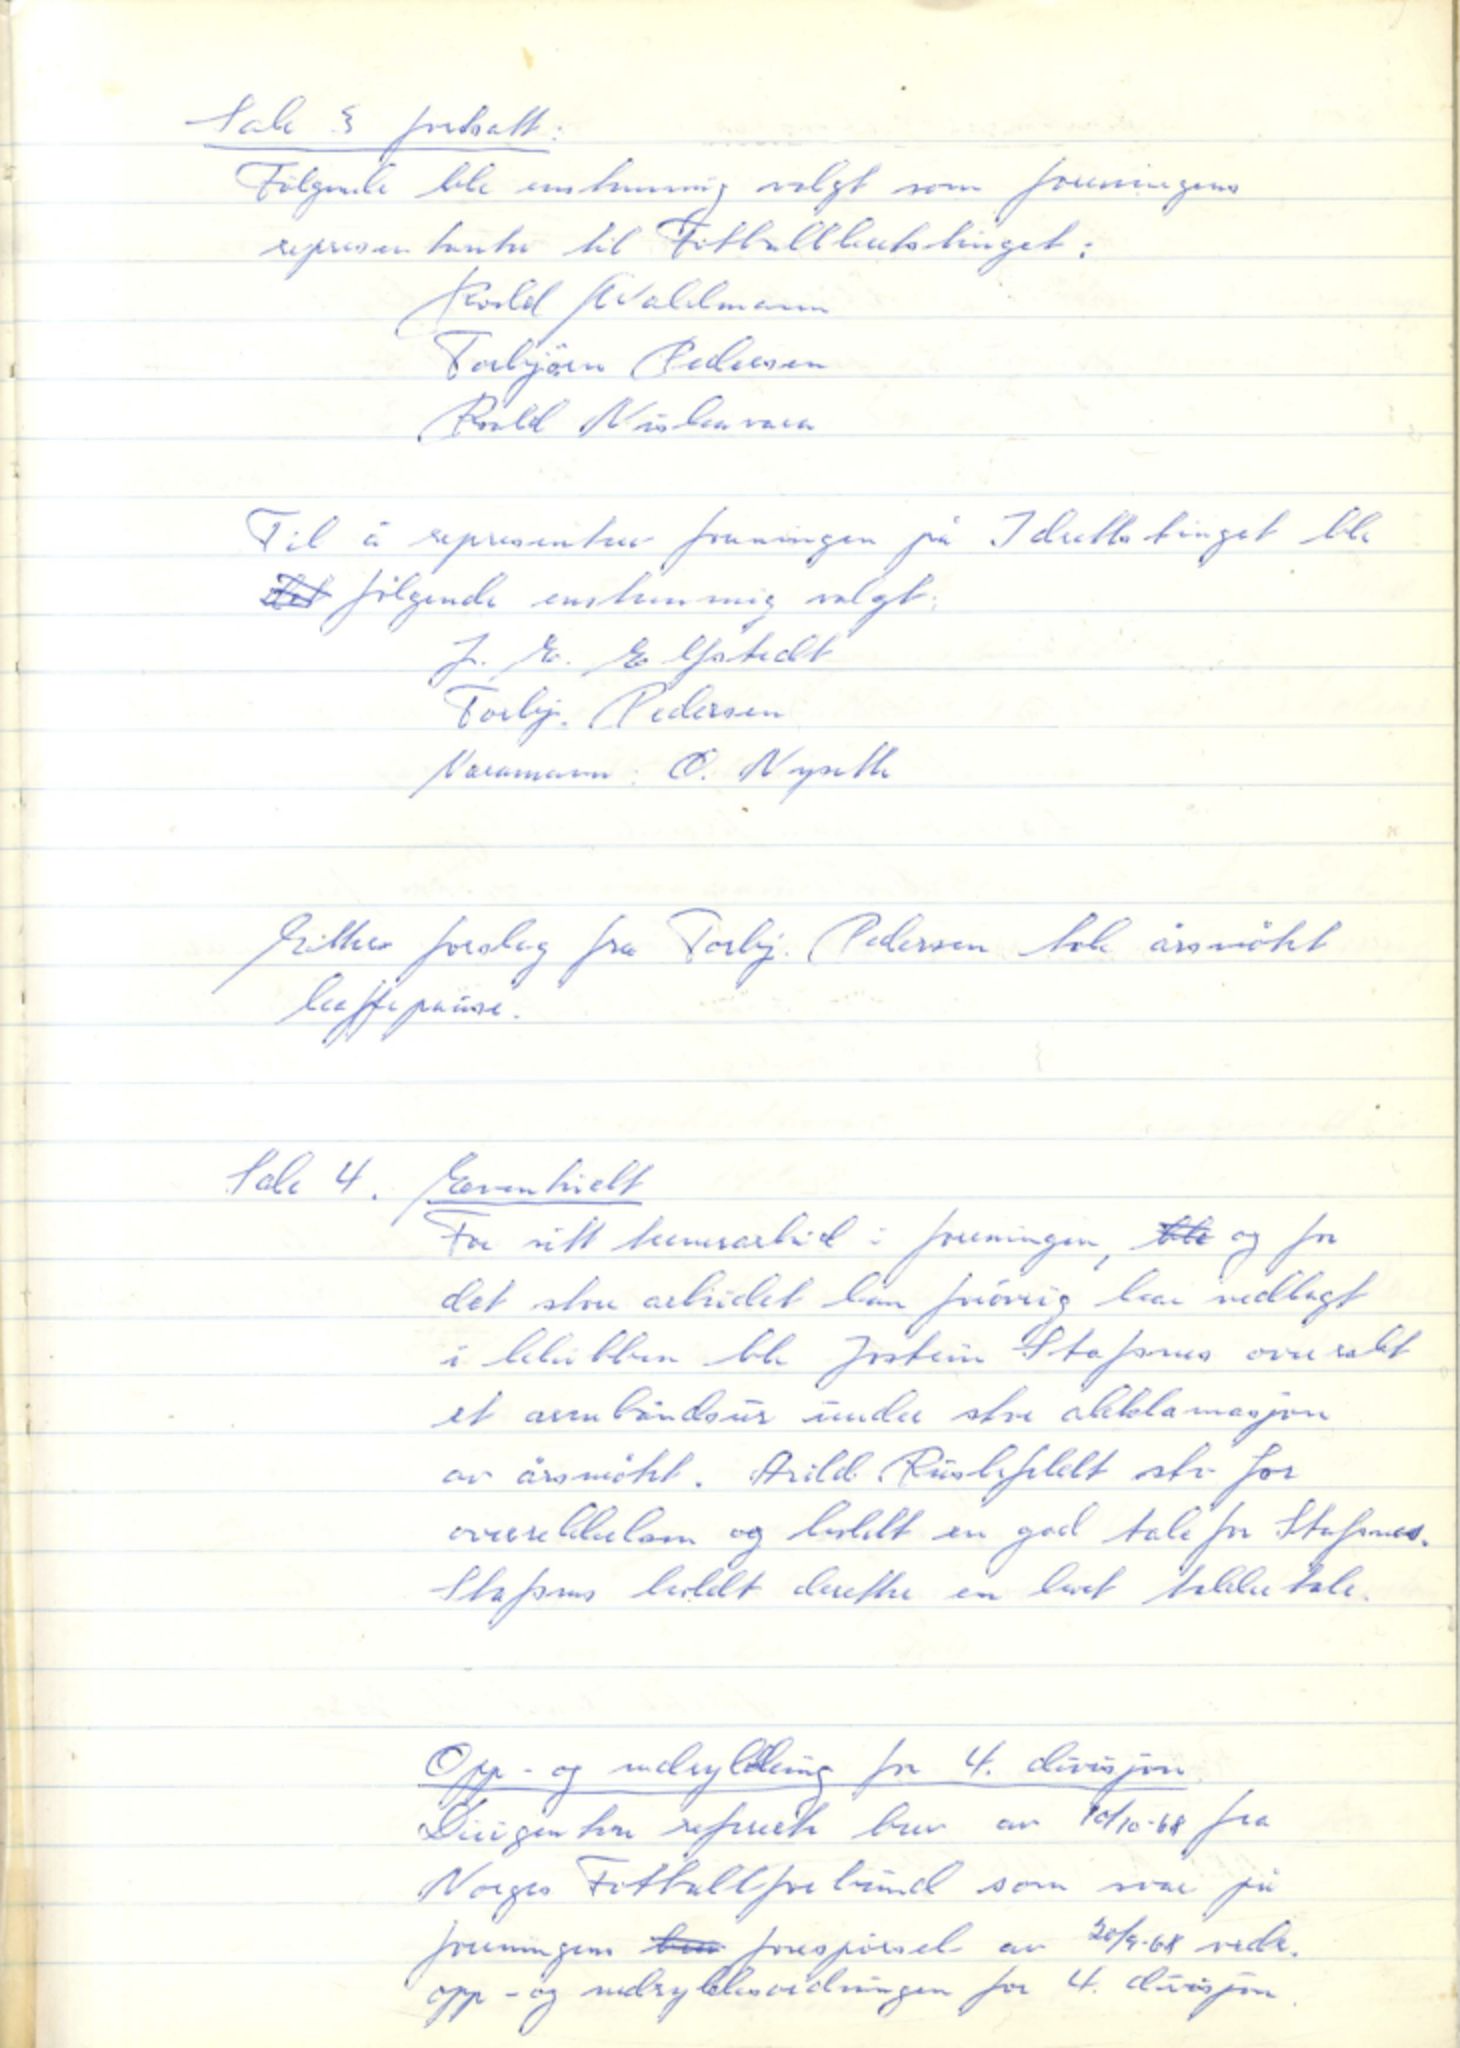 Sak 3 fortsatt:
Følgende ble enstemmig valgt som foreningens
representanter til Fotballkretstinget:
Roald Waldmann
Torbjörn Pedersen
Roald Niskavara
Til å representere foreningen på Idrettstinget ble
følgende enstemmig valgt:
J. E. Elfstedt
Torbj. Pedersen
Varamann: O. Nysette
Etter forslag fra Torbj. Pedersen tok årsmötet
kaffepause.
Sak 4. Eventuelt
For sitt trenerarbeid i foreningen, ble og for
det store arbeidet han forövrig har nedlagt
i klubben ble Jostein Stafsnes overrakt
et armbåndsur under stor akklamasjon
av årsmötet. Arild Rushfeldt sto for
overrekkelsen og holdt en god tale for Stafsnes.
Stafsnes holdt deretter en kort takketale.
Opp- og nedrykking for 4. divisjon
Dirigenten refererte brev av 10/10-68 fra
Norges Fotballforbund som svar på
foreningens brev forespörsel av 20/9-68 vedr.
opp- og nedrykksordningen for 4. divisjon.